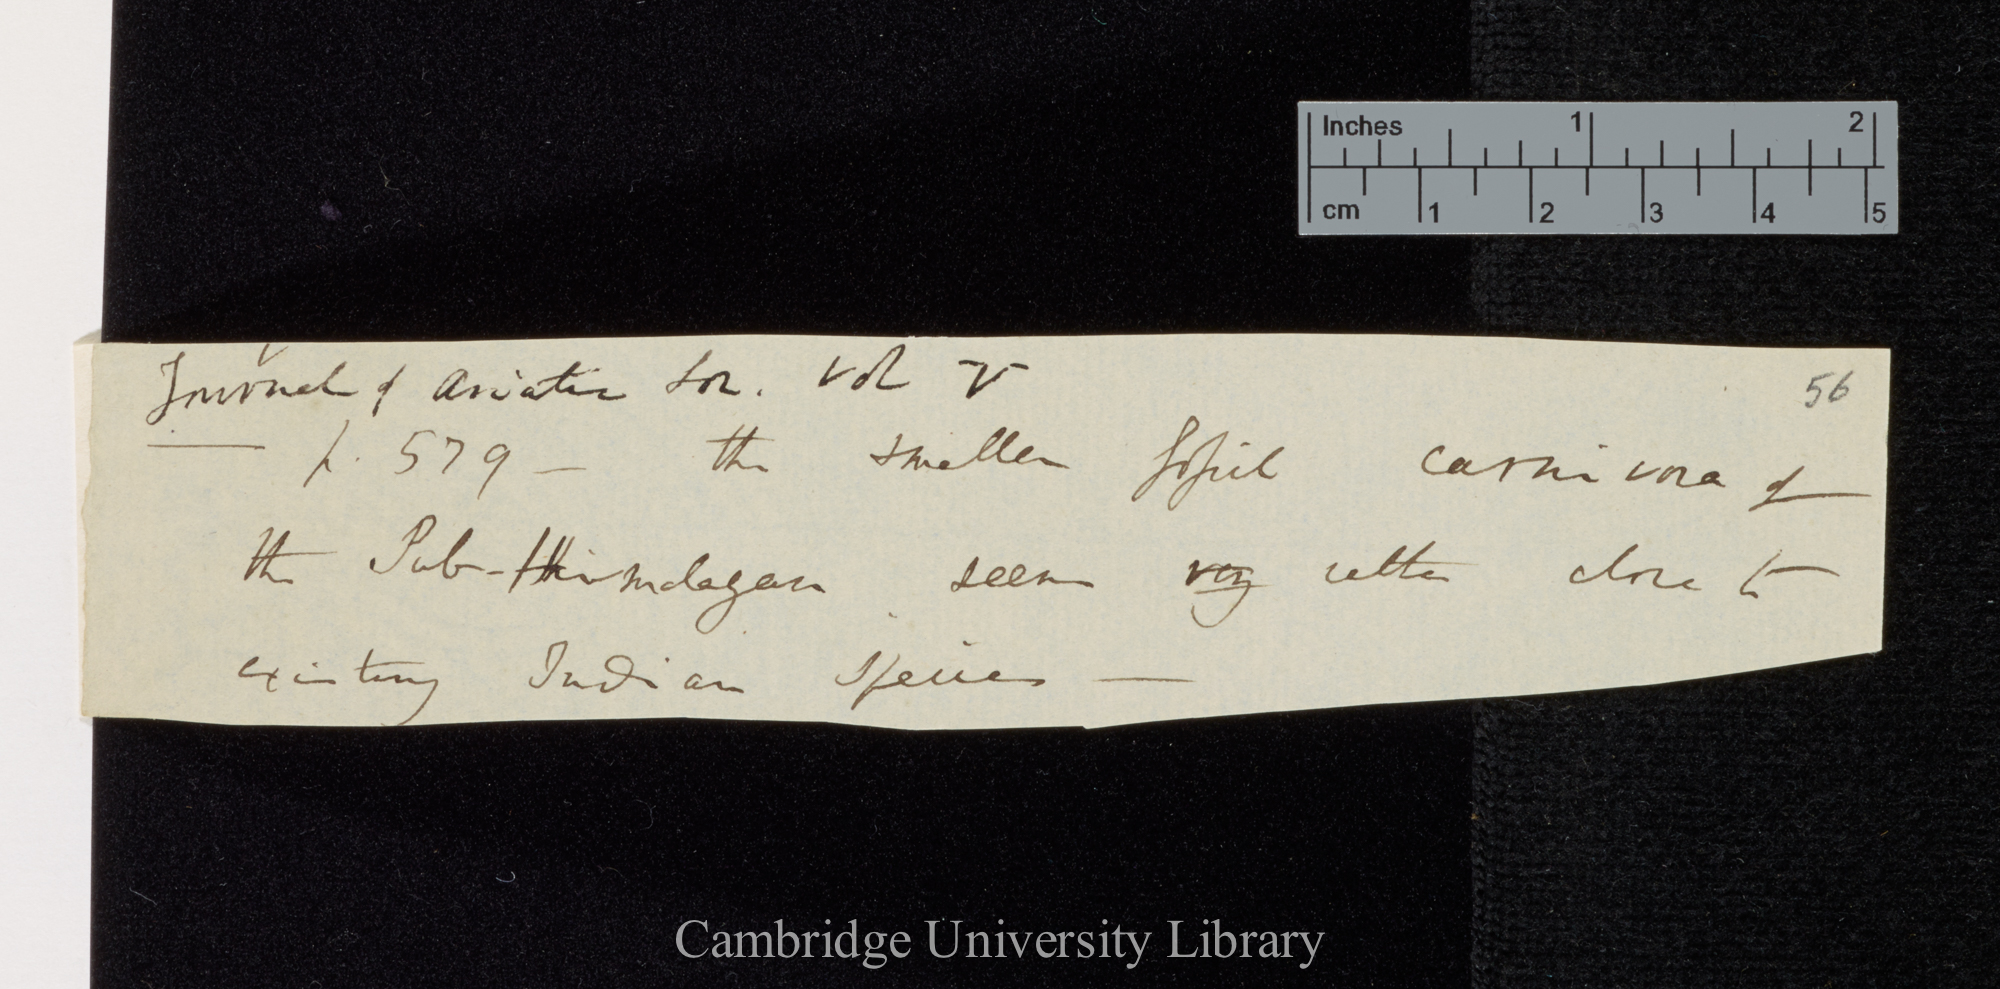 Journal of Asiatic Soc. Vol V
56
— p. 579 — the smaller fossil carnivora of
the Sub-Himalayan seem very rather close to
existing Indian species —
Inches 1 2
cm 1 2 3 4 5
Cambridge University Library